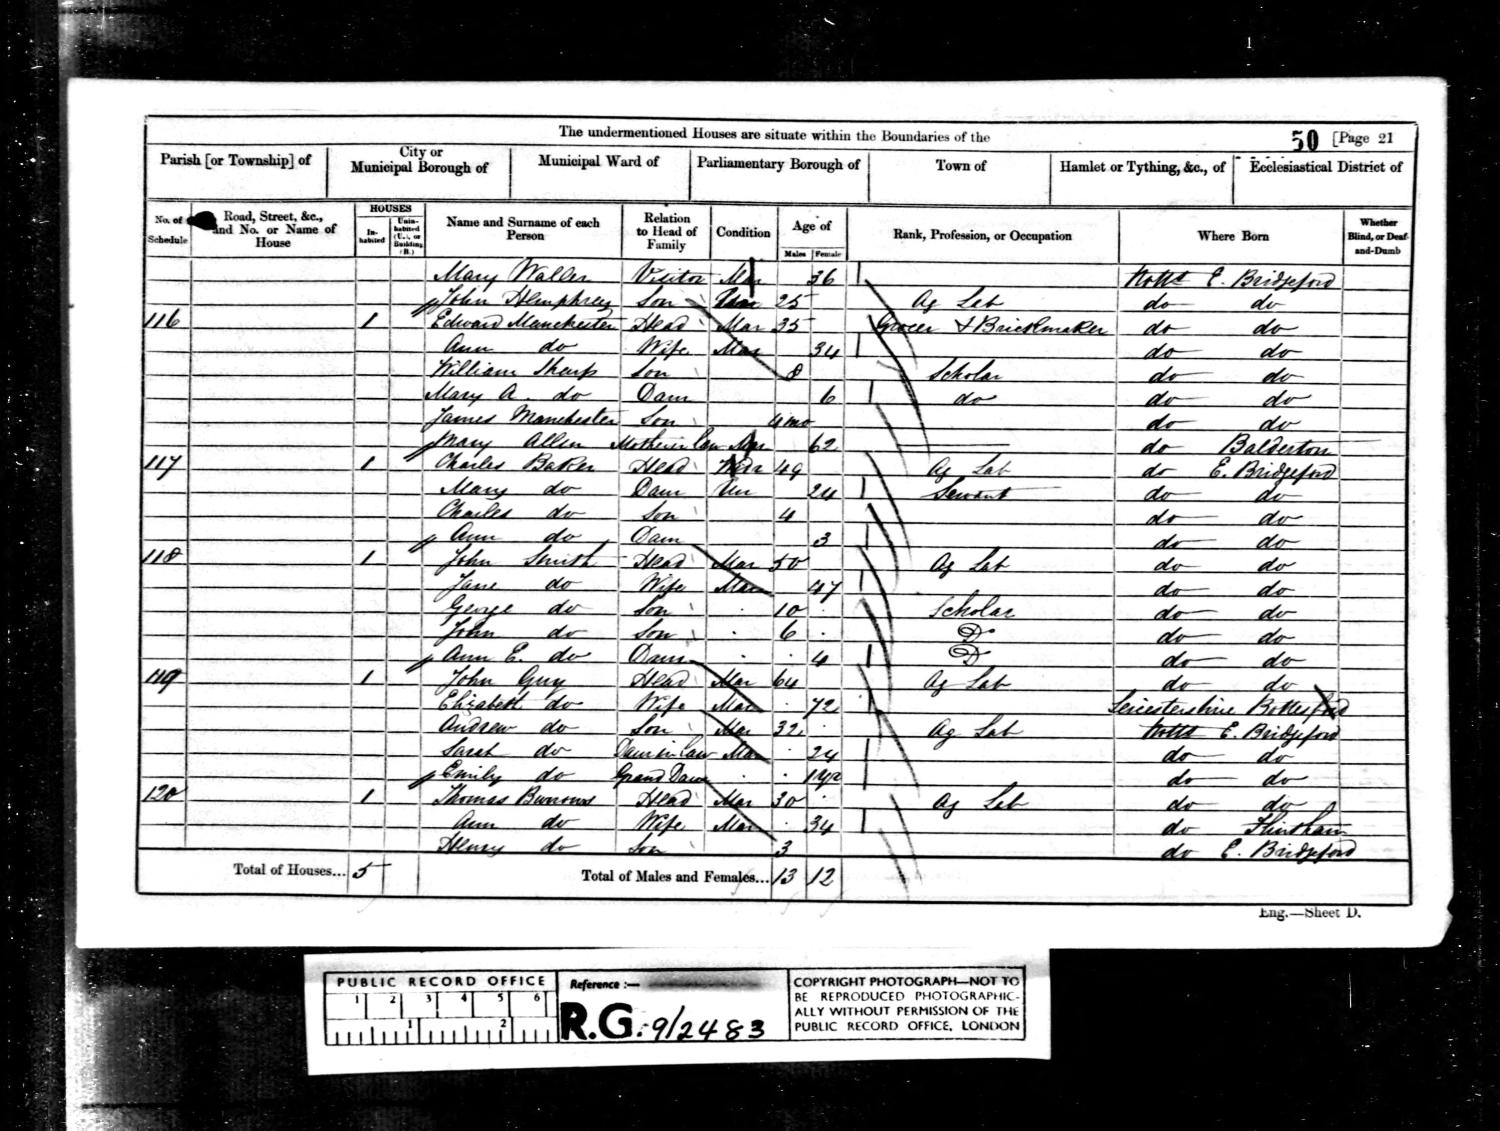 The undermentioned Houses are situate within the Boundaries of the
50 [Page 21
Parish [or Township] of
City or Municipal Borough of
Municipal Ward of
Parliamentary Borough of
Town of
Hamlet or Tything, &c., of
Ecclesiastical District of
No. of Schedule
Road, Street, &c., and No. or Name of House
HOUSES
In-habited
Unin-habited (U.), or Building (B.)
Name and Surname of each Person
Relation to Head of Family
Condition
Age of
Males Female
Rank, Profession, or Occupation
Where Born
Whether Blind, or Deaf-and-Dumb
Mary Waller Visitor Mar 36 Notts E. Bridgeford
John Hemphrey Son 25 Ag Lab do do
116 1 Edward Manchester Head Mar 35 Grocer & Brickmaker do do
Ann do Wife Mar 34 do do
William Sharp Son 8 Scholar do do
Mary A. do Daur 6 do do do
James Manchester Son 4 mo do do
Mary Allen Mother in law Mar 62 do Balderton
117 1 Charles Baker Head Widr 49 Ag Lab do E. Bridgeford
Mary do Daur Un 24 Servant do do
Charles do Son 4 do do
Ann do Daur 3 do do
118 1 John Smith Head Mar 50 Ag Lab do do
Jane do Wife Mar 47 do do
George do Son 10 Scholar do do
John do Son 6 Do do do
Ann E. do Daur 4 Do do do
119 1 John Guy Head Mar 64 Ag Lab do do
Elizabeth do Wife Mar 72 Leicestershire Bottesford
Andrew do Son Mar 32 Ag Lab Notts E. Bridgeford
Sarah do Daur in law Mar 24 do do
Emily do Grand Daur 1 yr do do
120 1 Thomas Burrows Head Mar 30 Ag Lab do do
Ann do Wife Mar 34 do Flintham
Henry do Son 3 do E. Bridgeford
Total of Houses... 5 Total of Males and Females... 13 12
Eng.—Sheet D.
PUBLIC RECORD OFFICE
1 2 3 4 5 6
1 2
Reference :—
R.G. 9/2483
COPYRIGHT PHOTOGRAPH—NOT TO
BE REPRODUCED PHOTOGRAPHIC-
ALLY WITHOUT PERMISSION OF THE
PUBLIC RECORD OFFICE, LONDON